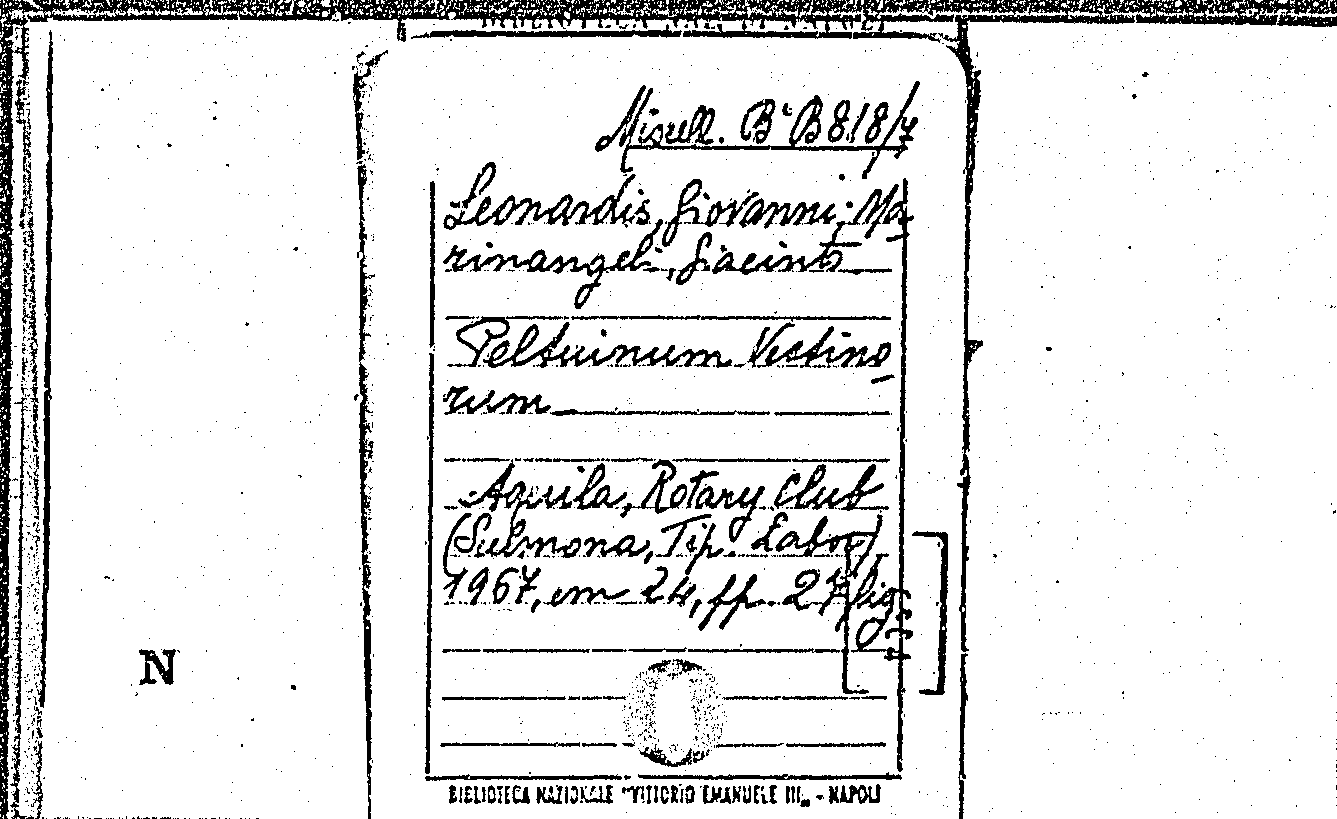 BIBLIOTECA NAZ. DI NAPOLI
Miscell. B^a B 818/7
Leonardis, Giovanni; Ma-
rinangeli, Giacinto
Peltuinum Vestino-
rum
Aquila, Rotary Club
(Sulmona, Tip. Labor)
1967, cm 24, pp. 27 fig.
N
BIBLIOTECA NAZIONALE "VITTORIO EMANUELE III„ - NAPOLI